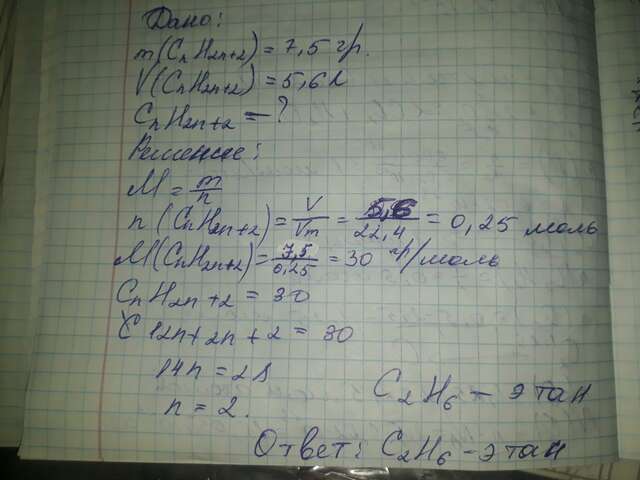 Дано:
m(CnH2n+2) = 7,5 гр.
V(CnH2n+2) = 5,6 л
CnH2n+2 - ?
Решение:
M = m/n
n (CnH2n+2) = V/Vm = 5,6/22,4 = 0,25 моль
M(CnH2n+2) = 7,5/0,25 = 30 гр/моль
CnH2n+2 = 30
12n+2n+2 = 30
14n = 28
n = 2.
C2H6 - этан
Ответ: C2H6 - этан